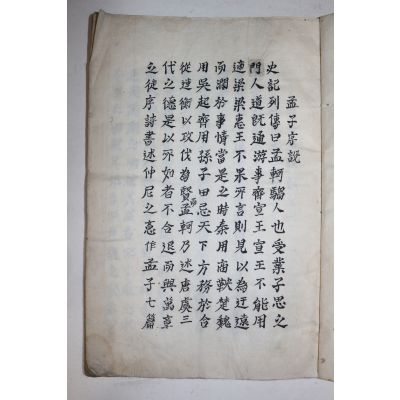 孟子序說
史記列傳曰孟軻騶人也受業子思之
門人道旣通游事齊宣王宣王不能用
適梁梁惠王不果所言則見以為迂遠
而濶於事情當是之時秦用商鞅楚魏
用吳起齊用孫子田忌天下方務於合
從連衡以攻伐為賢而孟軻乃述唐虞三
代之德是以所如者不合退而與萬章
之徒序詩書述仲尼之意作孟子七篇